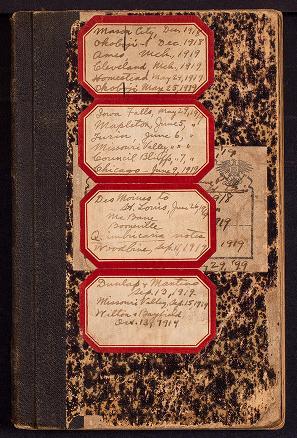 Mason City, Dec. 1918
Okoboji - Dec. 1918
Ames Mch, 1919
Cleveland Mch, 1919
Homestead May 24, 1919
Okoboji May 25, 1919
Iowa Falls, May 29, 19
Mapleton, June 5, "
Turin, June 6, "
Missouri Valley " 6 "
Council Bluffs, " 7, "
Chicago - June 9, 1919
Des Moines to
St. Louis, June 26, 19
Mc Bane
Booneville
Quimbriania notes
Woodbine, Sep. 11, 1919
Dunlap & Manteno
Sep. 13, 1919.
Missouri Valley, Sep. 15, 1919
Wilton & Bayfield.
Oct. 13, 1919
1918
1919
1919